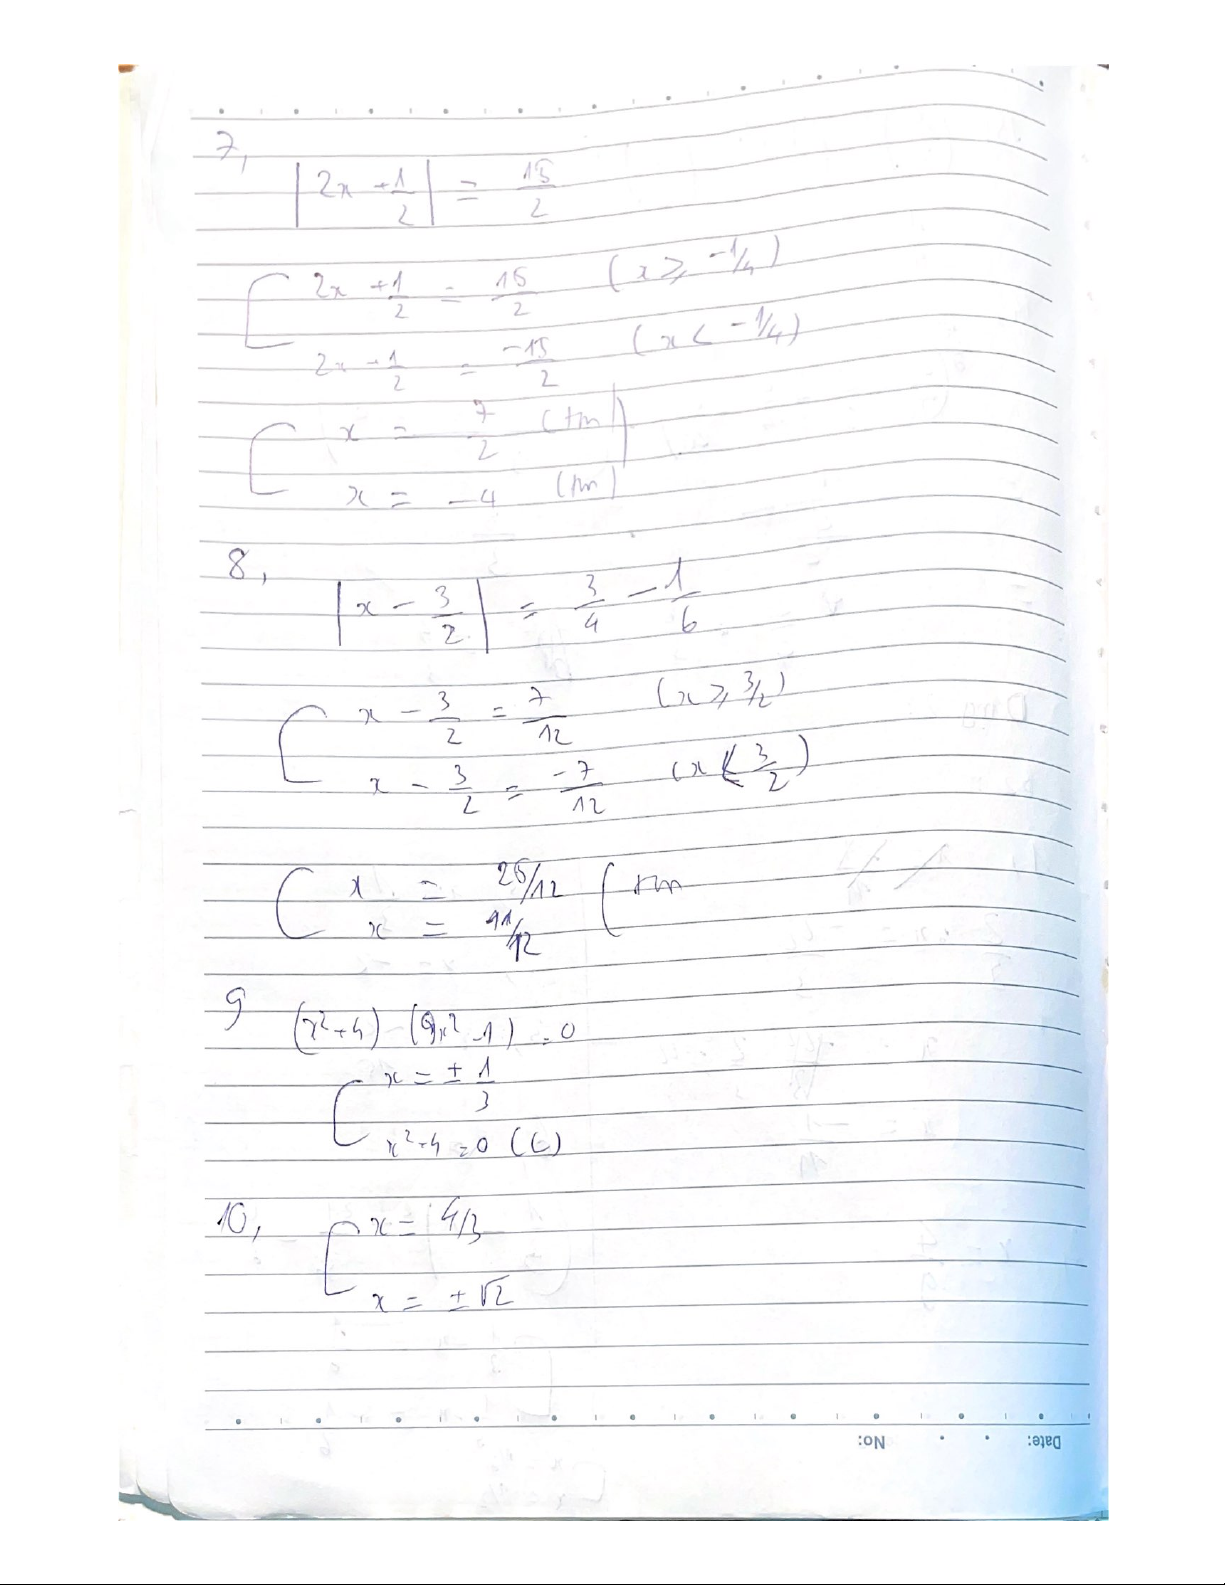 7,
|2x + 1/2| = 15/2
2x + 1/2 = 15/2 (x ⩾ -1/4)
2x + 1/2 = -15/2 (x < -1/4)
x = 7/2 (tm)
x = -4 (tm)
8,
|x - 3/2| = 3/4 - 1/6
x - 3/2 = 7/12 (x ⩾ 3/2)
x - 3/2 = -7/12 (x < 3/2)
x = 25/12 (tm
x = 11/12
9 (x² + 4) (9x² - 1) = 0
x = ± 1/3
x² + 4 = 0 (L)
10, x = 4/3
x = ±√2
No:
Date: